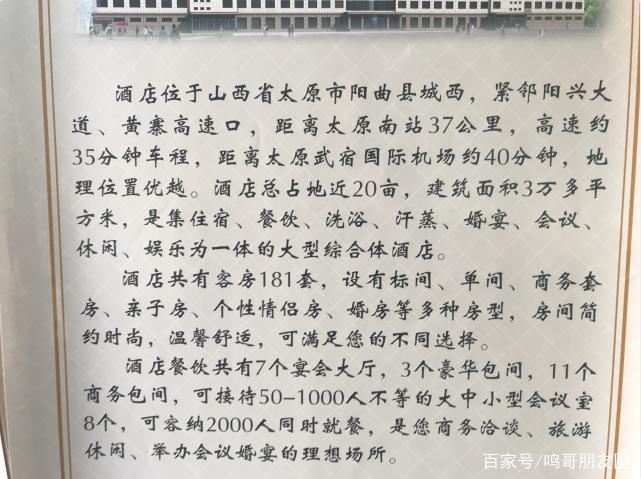 酒店位于山西省太原市阳曲县城西，紧邻阳兴大
道、黄寨高速口，距离太原南站37公里，高速约
35分钟车程，距离太原武宿国际机场约40分钟，地
理位置优越。酒店总占地近20亩，建筑面积3万多平
方米，是集住宿、餐饮、洗浴、汗蒸、婚宴、会议、
休闲、娱乐为一体的大型综合体酒店。
酒店共有客房181套，设有标间、单间、商务套
房、亲子房、个性情侣房、婚房等多种房型，房间简
约时尚，温馨舒适，可满足您的不同选择。
酒店餐饮共有7个宴会大厅，3个豪华包间，11个
商务包间，可接待50-1000人不等的大中小型会议室
8个，可容纳2000人同时就餐，是您商务洽谈、旅游
休闲、举办会议婚宴的理想场所。
百家号/鸣哥朋友圈